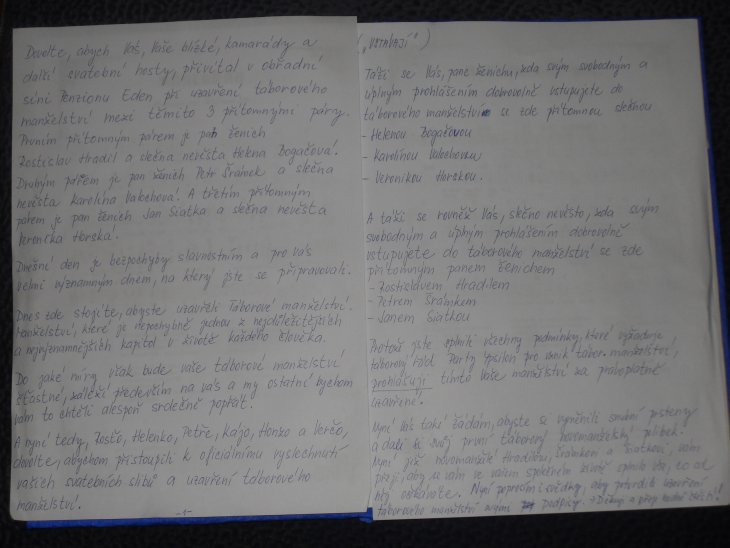 Dovolte, abych Vás, Vaše blízké, kamarády a
další svatební hosty, přivítal v obřadní
síni Penzionu Eden při uzavření táborového
manželství mezi těmito 3 přítomnými páry.
Prvním přítomným párem je pan ženich
Rostislav Hradil a slečna nevěsta Helena Bogačová.
Druhým párem je pan ženich Petr Šrámek a slečna
nevěsta Karolína Valechová. A třetím přítomným
párem je pan ženich Jan Siatka a slečna nevěsta
Veronika Horská.
Dnešní den je bezpochyby slavnostním a pro vás
velmi významným dnem, na který jste se připravovali.
Dnes zde stojíte, abyste uzavřeli Táborové manželství.
Manželství, které je nepochybně jednou z nejdůležitějších
a nejvýznamnějších kapitol v životě každého člověka.
Do jaké míry však bude vaše táborové manželství
šťastné, záleží především na vás a my ostatní bychom
vám to chtěli alespoň srdečně popřát.
A nyní tedy, Rosťo, Helenko, Petře, Kájo, Honzo a Verčo,
dovolte, abychom přistoupili k oficiálnímu vyslechnutí
vašich svatebních slibů a uzavření táborového
manželství.
-1-
("VSTÁVAJÍ")
Táži se Vás, pane ženichu, zda svým svobodným a
úplným prohlášením dobrovolně vstupujete do
táborového manželství se zde přítomnou slečnou
- Helenou Bogačovou
- Karolínou Valechovou
- Veronikou Horskou.
A táži se rovněž Vás, slečno nevěsto, zda svým
svobodným a úplným prohlášením dobrovolně
vstupujete do táborového manželství se zde
přítomným panem ženichem
- Rostislavem Hradilem
- Petrem Šrámkem
- Janem Siatkou
Protože jste splnili všechny podmínky, které vyžaduje
táborový řád Party Ypsilon pro vznik tábor. manželství,
prohlašuji tímto Vaše manželství za právoplatně
uzavřené.
Nyní Vás také žádám, abyste si vyměnili snubní prsteny
a dali si svůj první táborový novomanželský polibek.
Nyní již novomanželé Hradilovi, Šrámkovi a Siatkovi, vám
přeji, aby se vám ve vašem společném životě splnilo vše, co od
něj očekáváte. Nyní poprosím i svědky, aby potvrdili uzavření
táborového manželství svými podpisy. → Děkuji a přeji hodně štěstí!!